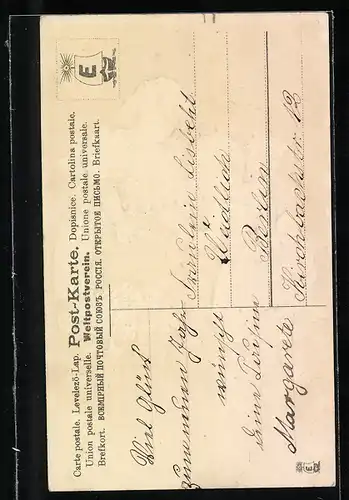 Carte postale. Levelező-Lap. Post-Karte. Dopisnice. Cartolina postale.
Union postale universelle. Weltpostverein. Unione postale universale.
Brefkort. ВСЕМІРНЫЙ ПОЧТОВЫЙ СОЮЗЪ. РОССІЯ. ОТКРЫТОЕ ПИСЬМО. Briefkaart.
E
Viel Glück
zum neuen Jahr
wünscht
deine
Margarete
Fräulein
Berlin
E